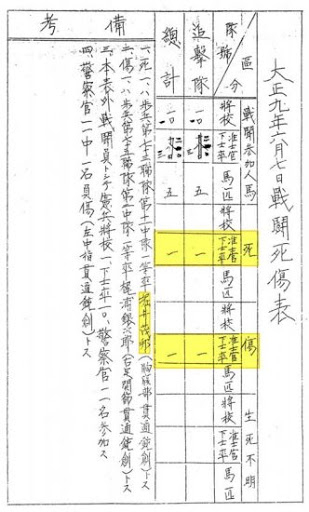 大正九年六月七日戰鬪死傷表
區分
隊號
戰鬪參加人馬
死
傷
生死不明
將校
准士官下士卒
馬匹
將校
准士官下士卒
馬匹
將校
准士官下士卒
馬匹
將校
准士官下士卒
馬匹
追擊隊
一〇
五
一
一
總計
一〇
五
一
一
備考
一、死一、ハ步兵第七十三聯隊第十一中隊一等卒
(胸部貫通銃創)トス
二、傷一、ハ步兵第七十五聯隊第一中隊二等卒
(右足關節貫通銃創)トス
三、本表外戰鬪員トシテ憲兵將校一、下士卒一〇、警察官一一名參加ス
四、警察官一一中一名負傷(左中指貫通銃創)トス